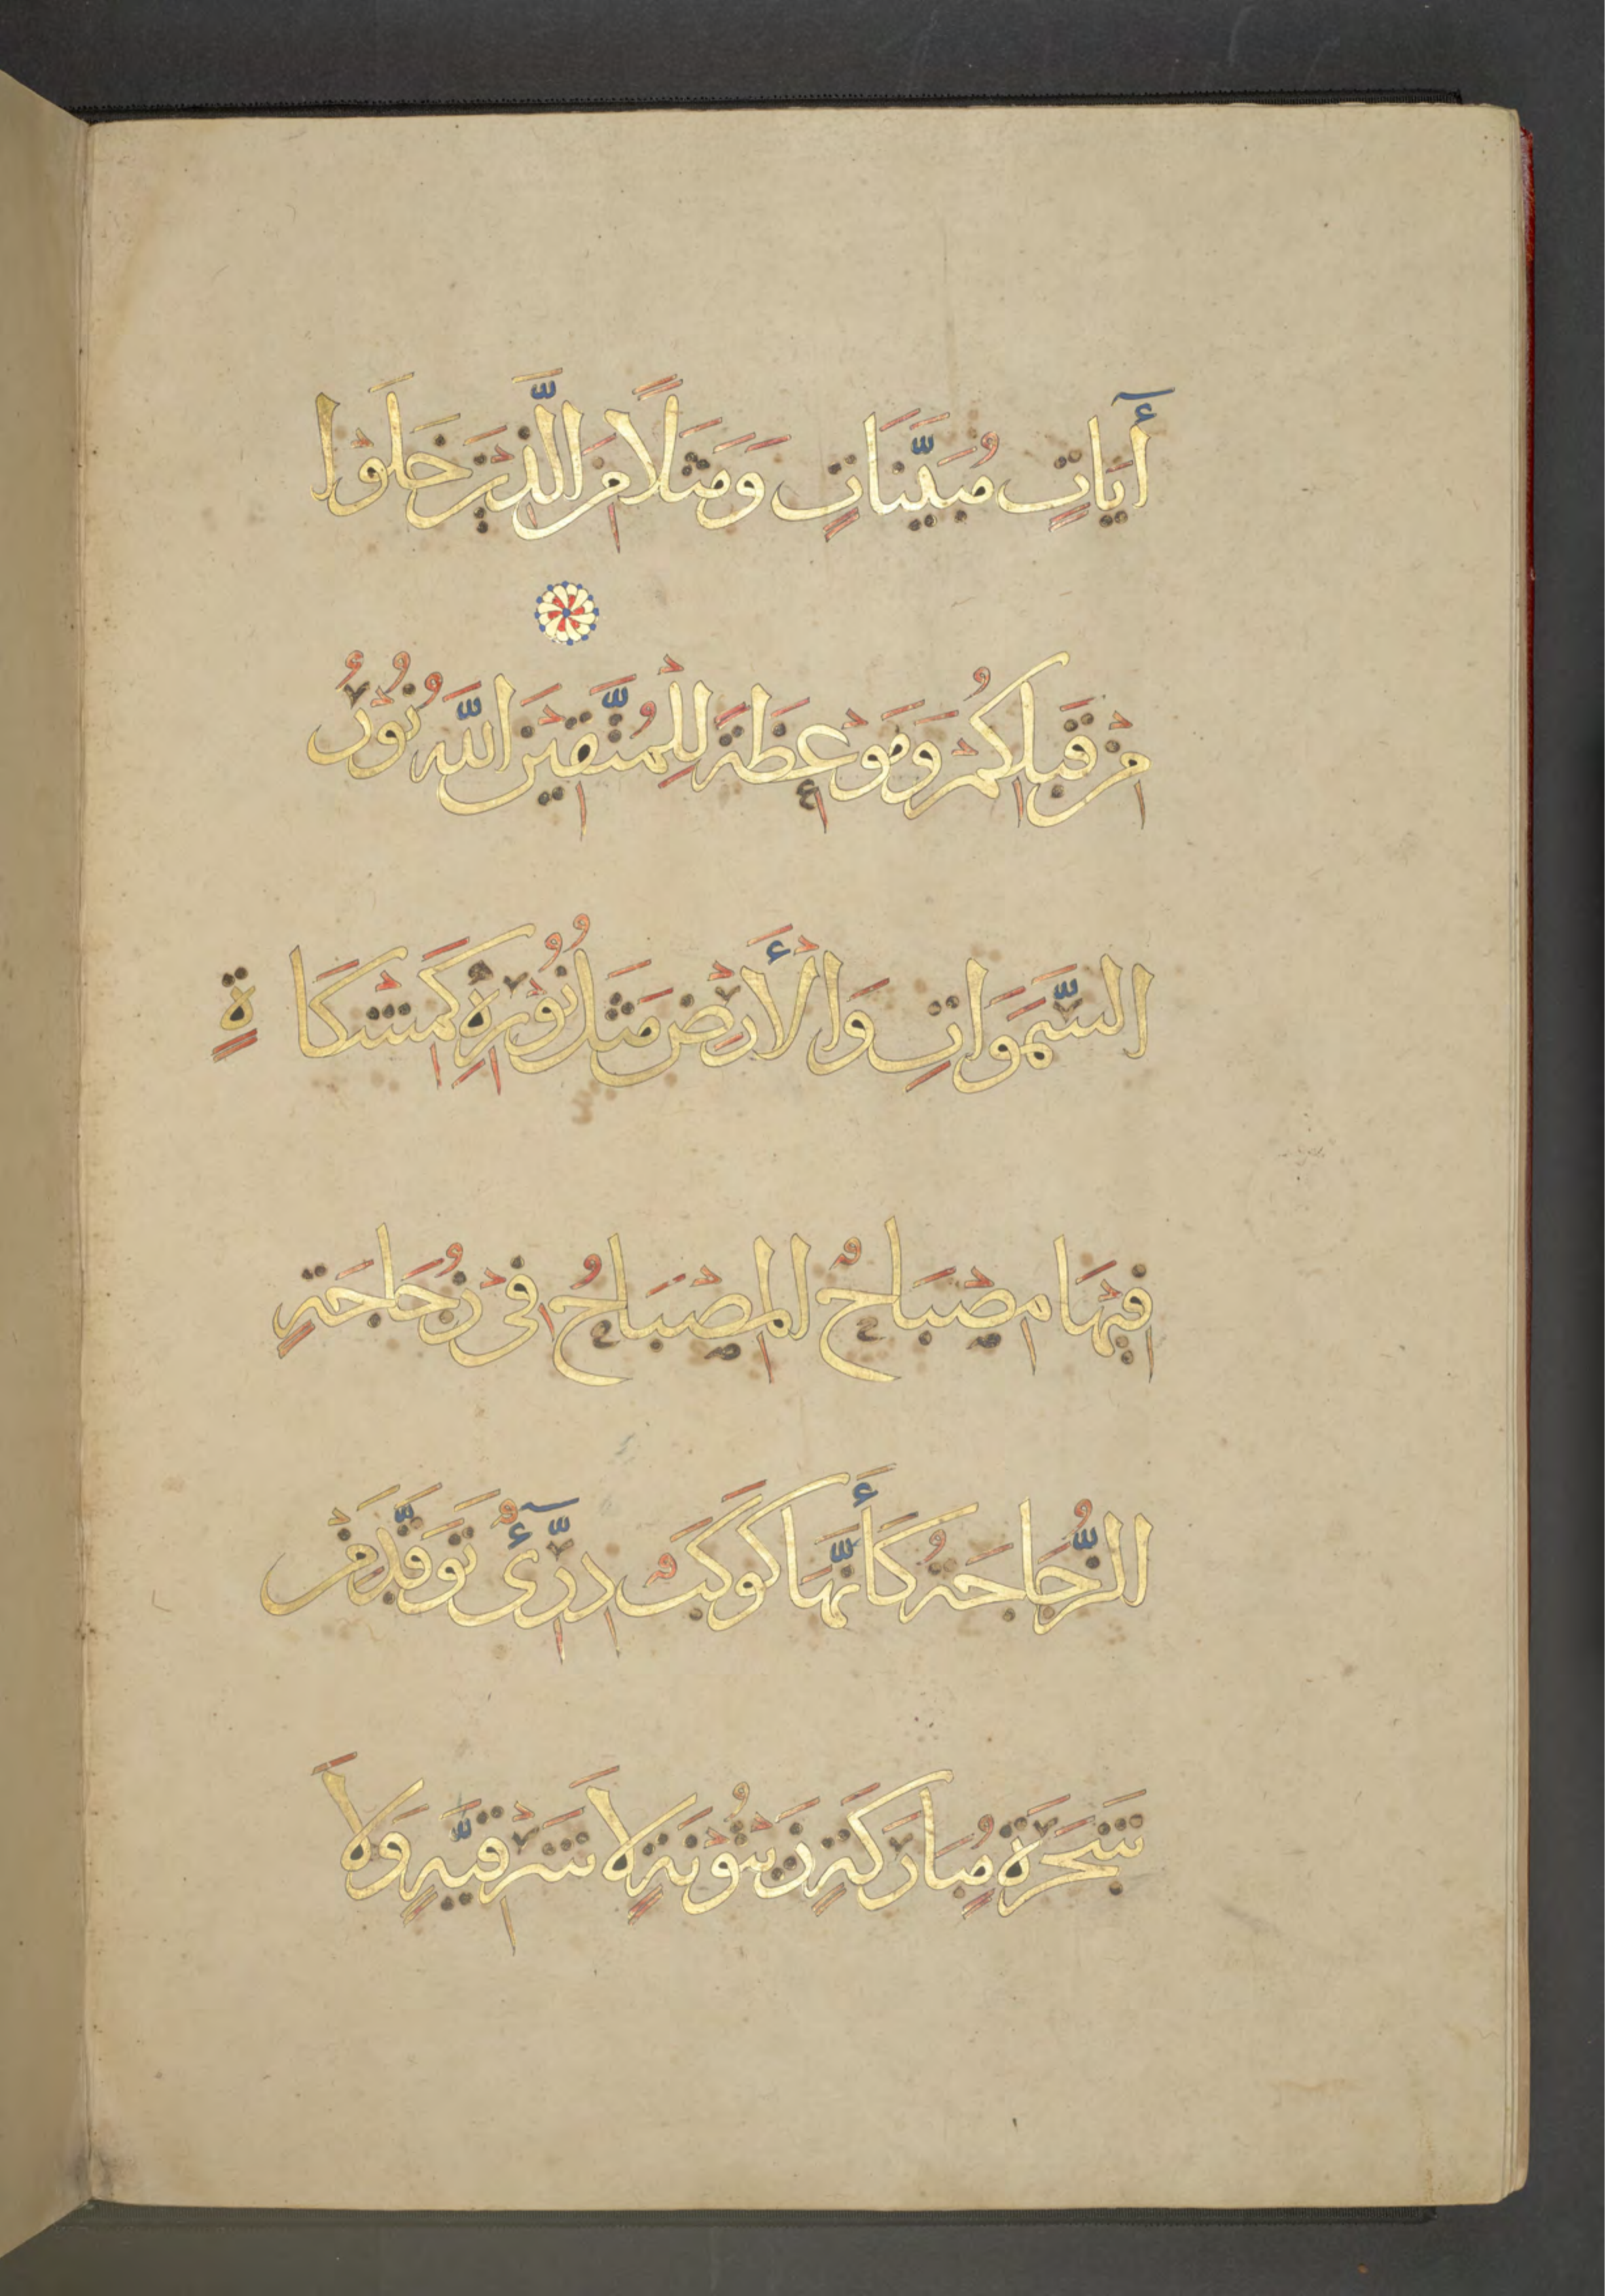 آيَاتٍ مُبَيَّنَاتٍ وَمَثَلًا مِنَ الَّذِينَ خَلَوْا
مِنْ قَبْلِكُمْ وَمَوْعِظَةً لِلْمُتَّقِينَ اللَّهُ نُورُ
السَّمَوَاتِ وَالْأَرْضِ مَثَلُ نُورِهِ كَمِشْكَاةٍ
فِيهَا مِصْبَاحٌ الْمِصْبَاحُ فِي زُجَاجَةٍ
الزُّجَاجَةُ كَأَنَّهَا كَوْكَبٌ دِرِّىٓءٌ تَوَقَّدَ مِنْ
شَجَرَةٍ مُبَارَكَةٍ زَيْتُونَةٍ لَا شَرْقِيَّةٍ وَلَا